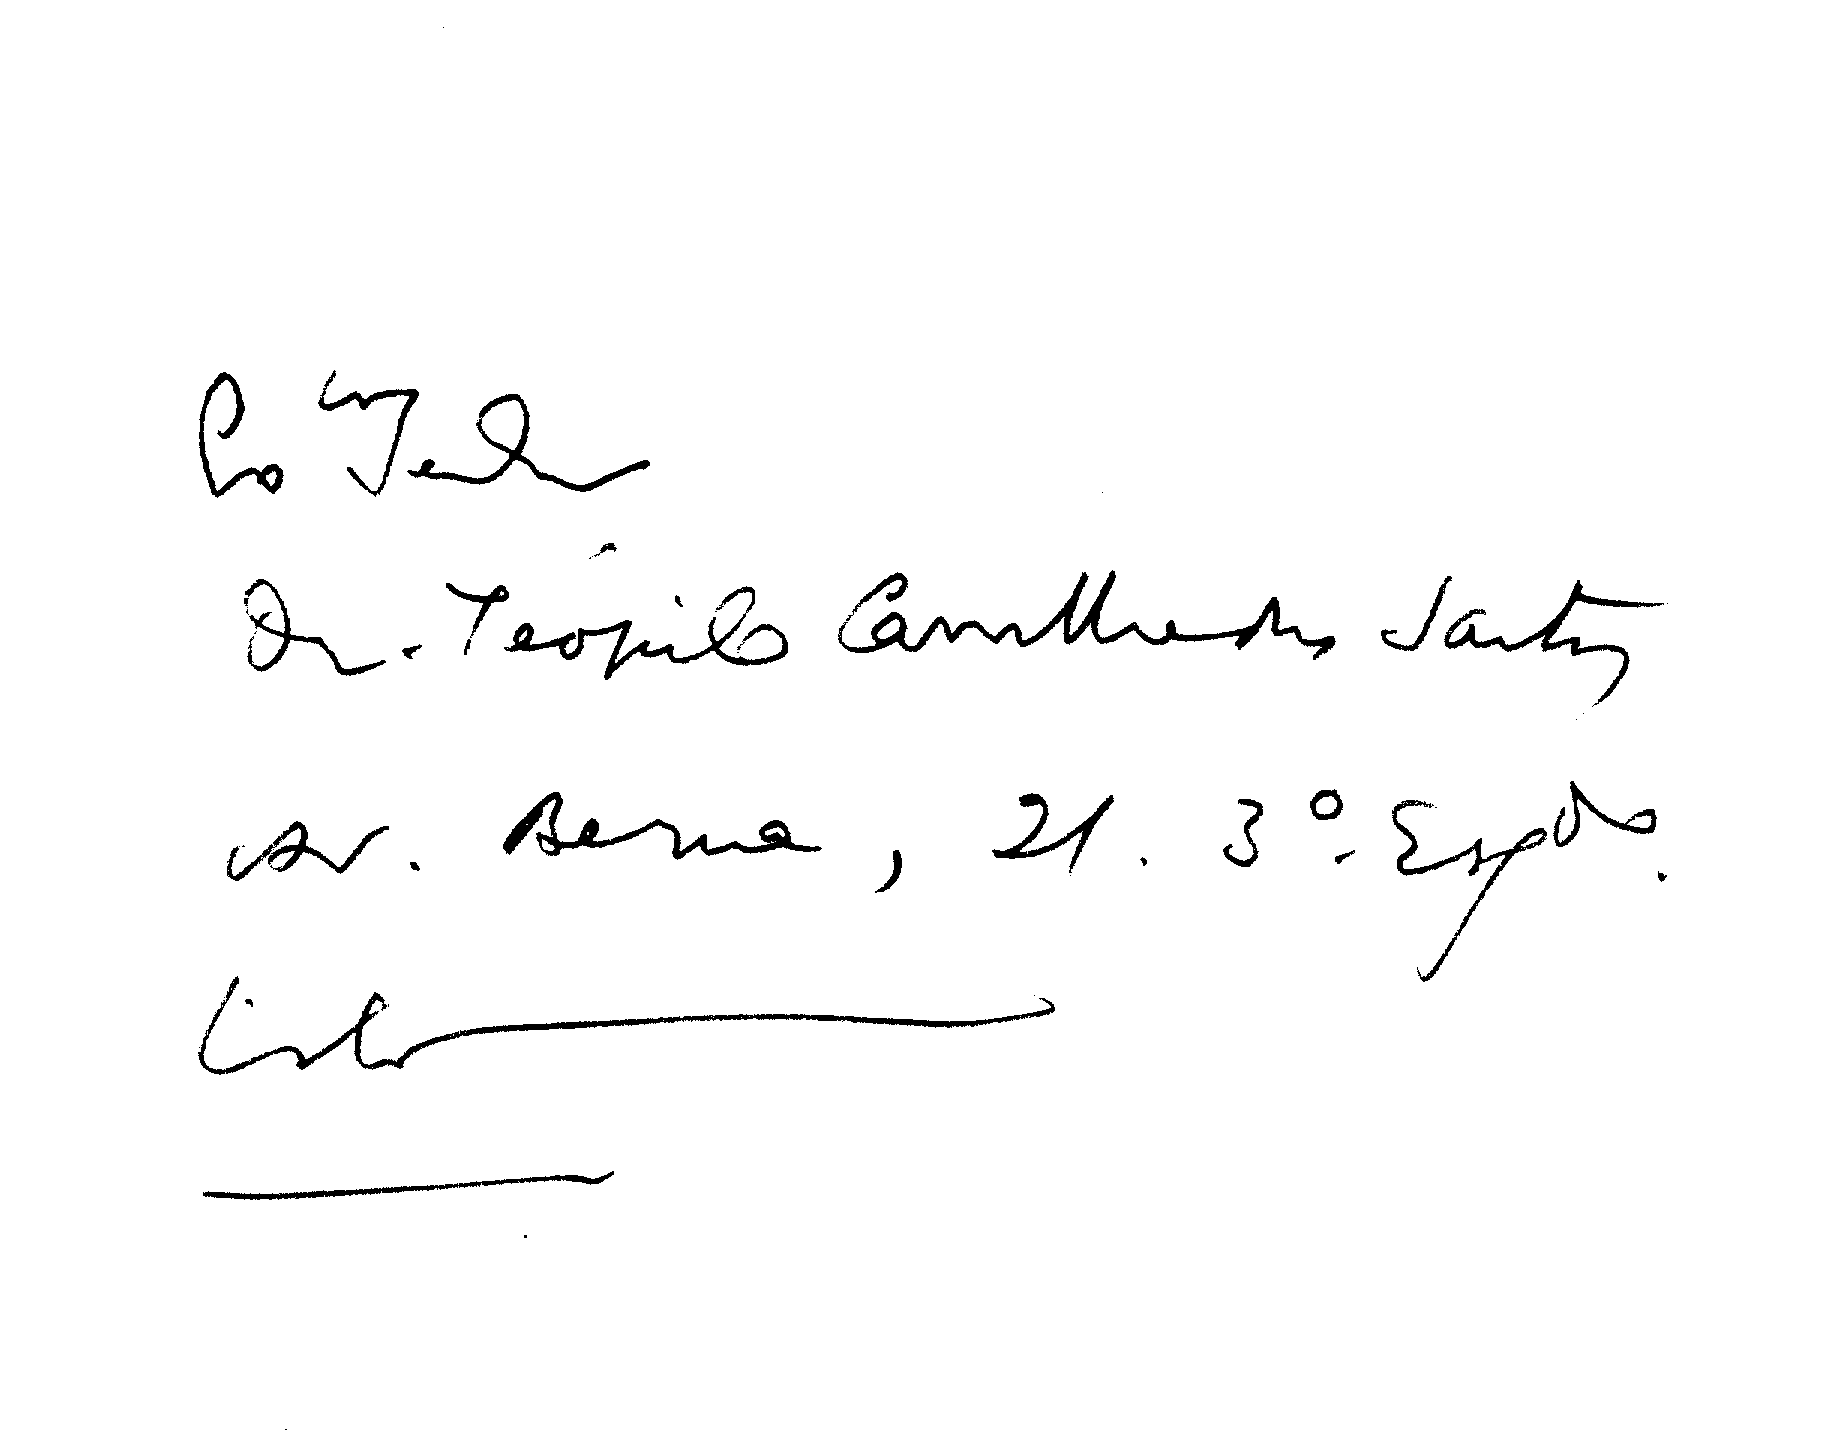 Dr. Teófilo Carvalho dos Santos
Av. Berna, 21. 3º. Esqdo.
Lisboa